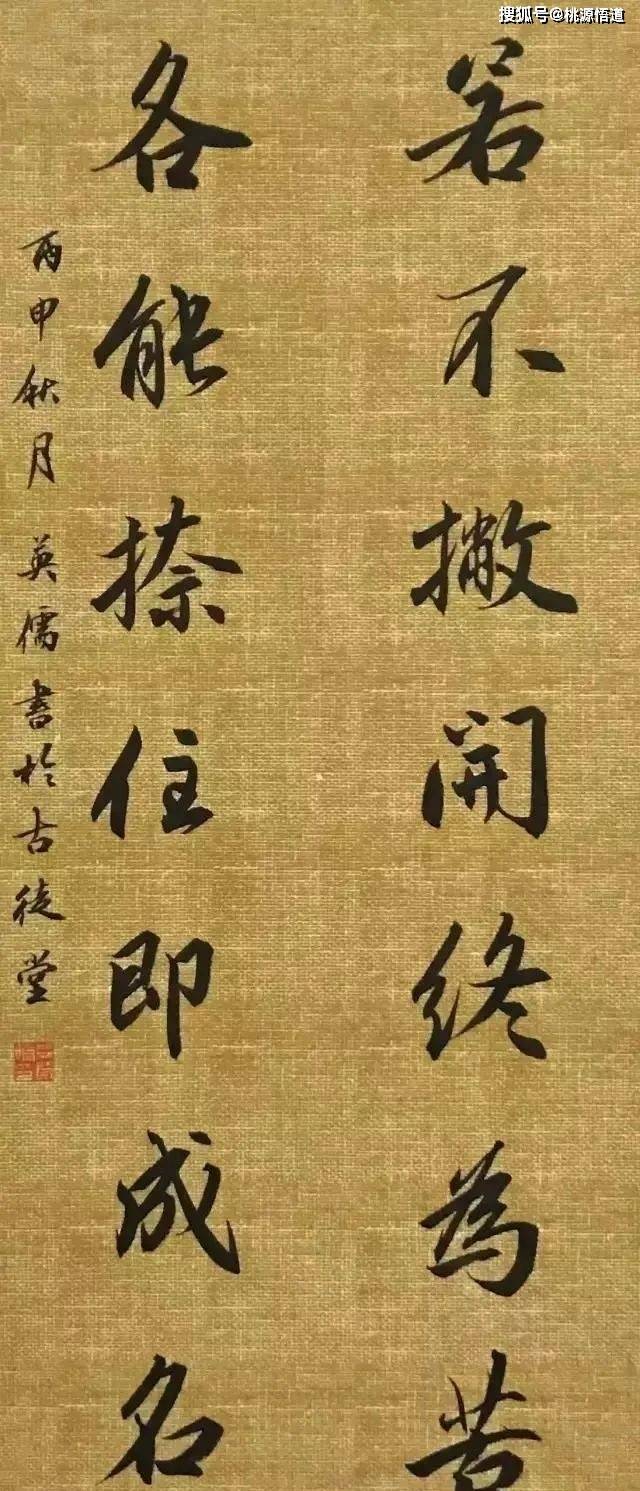 搜狐号@桃源悟道
若不撇開终為苦
各能捺住即成名
丙申秋月英儒書於古徒堂